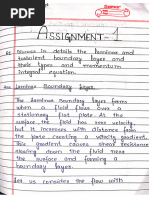 ASSIGNMENT-1
Q1 Discuss in details the laminar and
turbulent boundary layer and
their types and momentum
integral equation.
Ans Laminar Boundary Layer.
The laminar Boundary layer forms
when a fluid flows over a
stationary flat plate. At the
surface the fluid has zero velocity,
but it increases with distance from
the plate creating a velocity gradient.
This gradient causes shear resistance
slowing down the fluid near
the surface and forming a
boundary layer.
let us consider the flow with